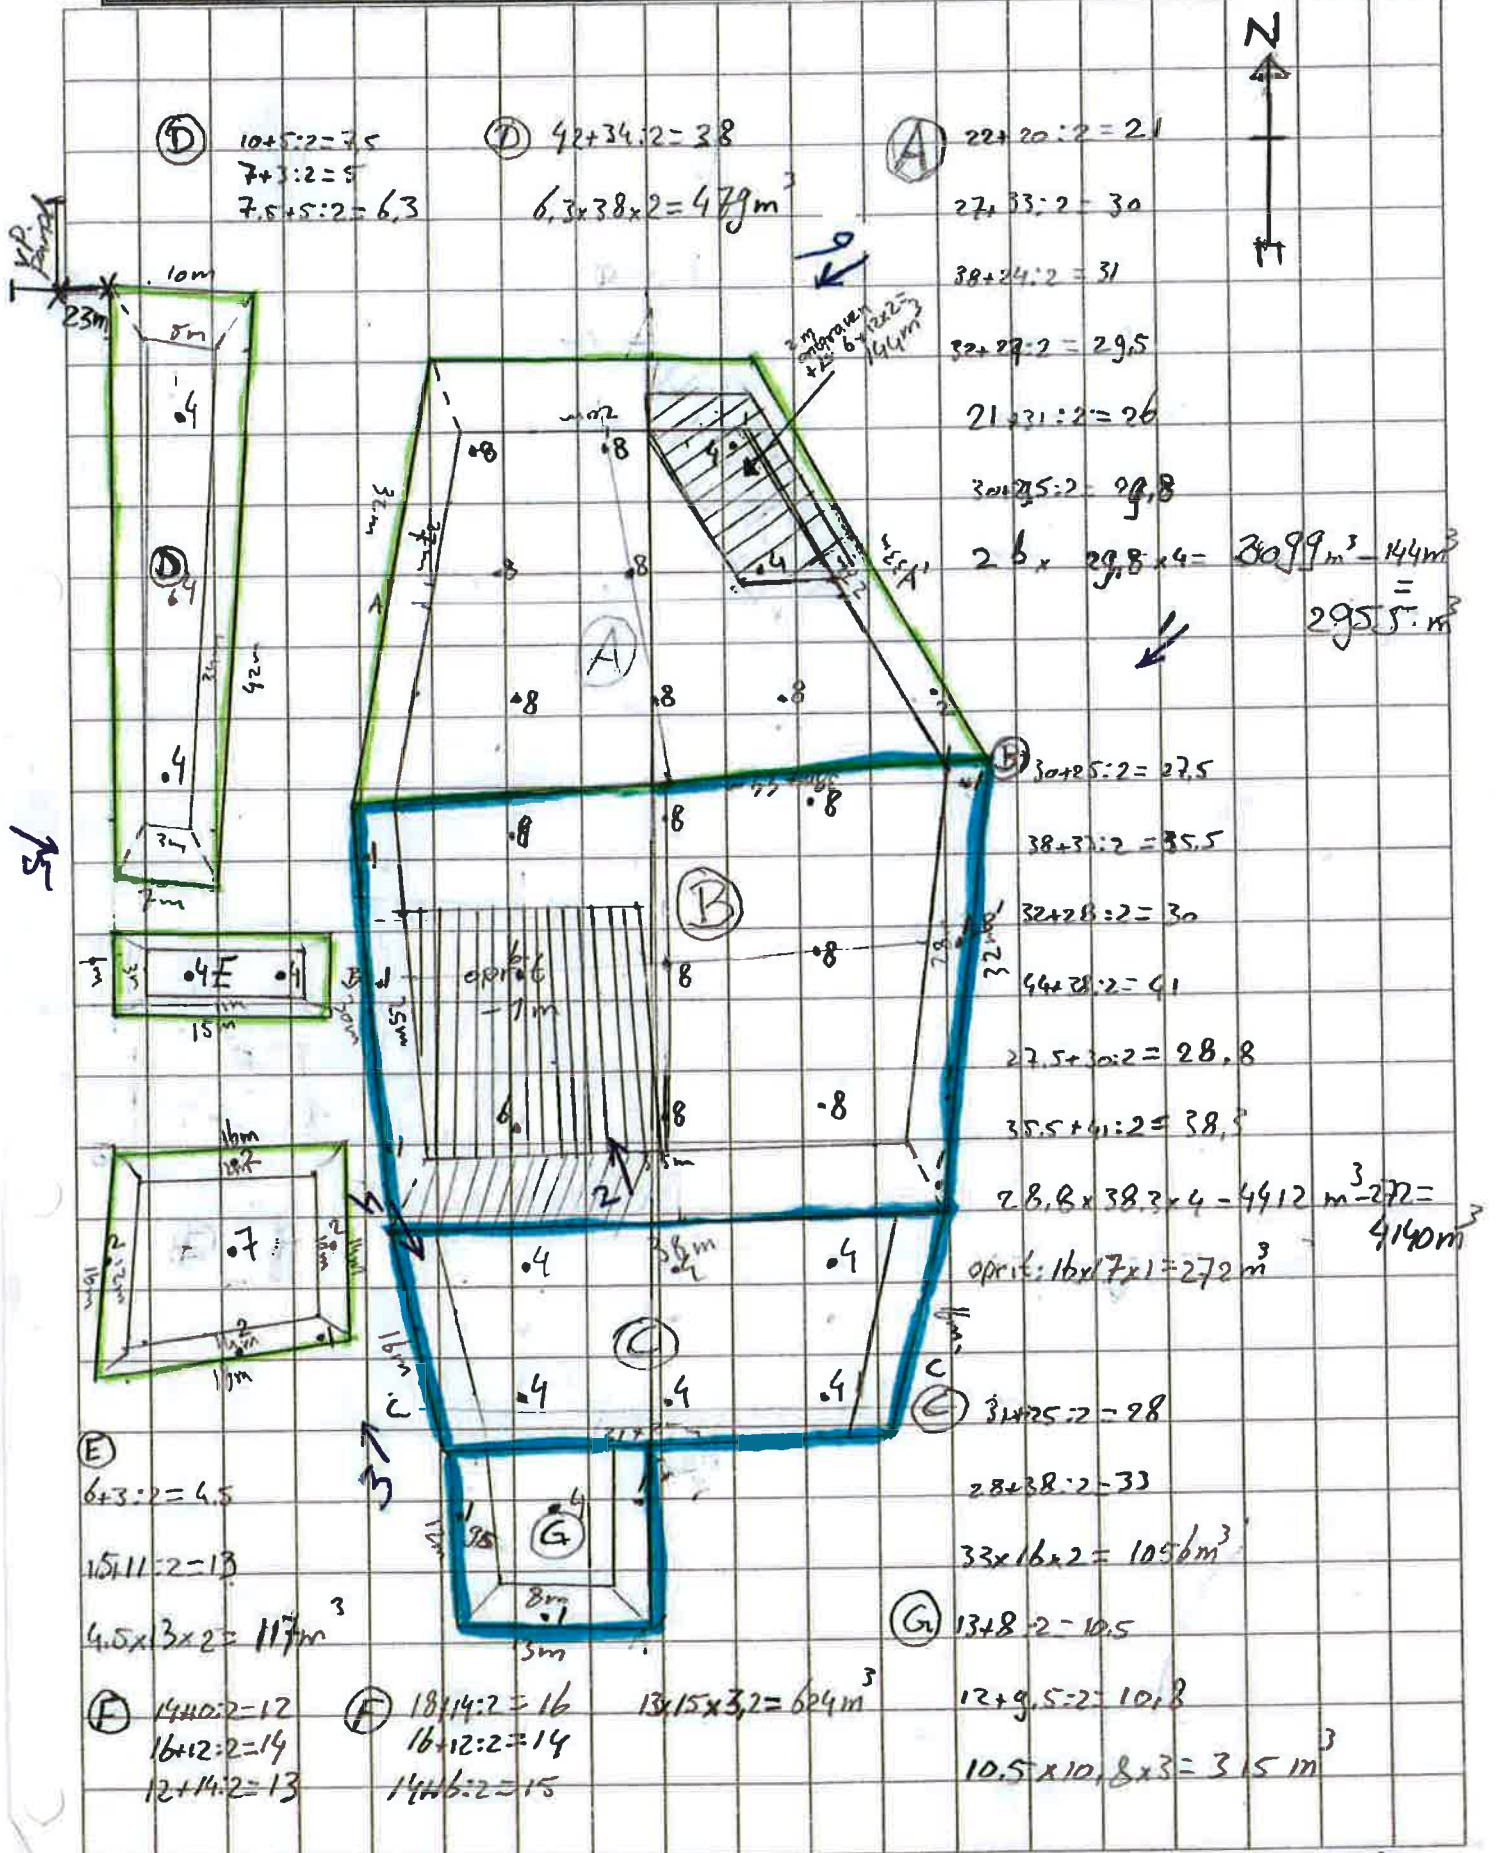 N
D
10+5:2=7,5
7+3:2=5
7.5+5:2=6,3
D 42+34:2=38
6,3x38x2=479m³
A
22+20:2=21
27+33:2=30
38+24:2=31
32+27:2=29,5
21+31:2=26
30+29,5:2=29,8
26x 29,8x4= 3099m³-144m³
=
2955 m³
23m
10m
5m
.4
D
.4
.4
34m
42m
3m
7m
6
6x12x2=
144m³
20m
.8
.8
4
32m
27m
.8
.8
.4
A
A'
A
.8
.8
.8
.2
1
B
30+25:2=27,5
.8
.8
.8
38+33:2=35.5
B
32+28:2=30
44+38:2=41
27.5+30:2=28,8
35.5+41:2=38,3
28,8x38,3x4=4412 m³-272=
4140m³
oprit: 16x17x1=272m³
5
.4 E .4
11m
15m
B
30m
25m
6
oprit
-1m
6.
.8
.8
B'
28
32m
.8
.8
2
16m
.7
.2
.2
.2
16m
12m
.1
4
38m
.4
.4
.4
.4
.4
C
16m
C
C
3
C 31+25:2=28
28+38:2=33
33x16x2=1056m³
.4
G
9,5
12m
8m
.1
13m
G 13+8:2=10.5
12+9,5:2=10,8
10.5x10,8x3=315 m³
E
6+3:2=4.5
15+11:2=13
4.5x13x2=117m³
F 14+10:2=12
16+12:2=14
12+14:2=13
F 18+14:2=16
16+12:2=14
14+16:2=15
13x15x3,2=624m³